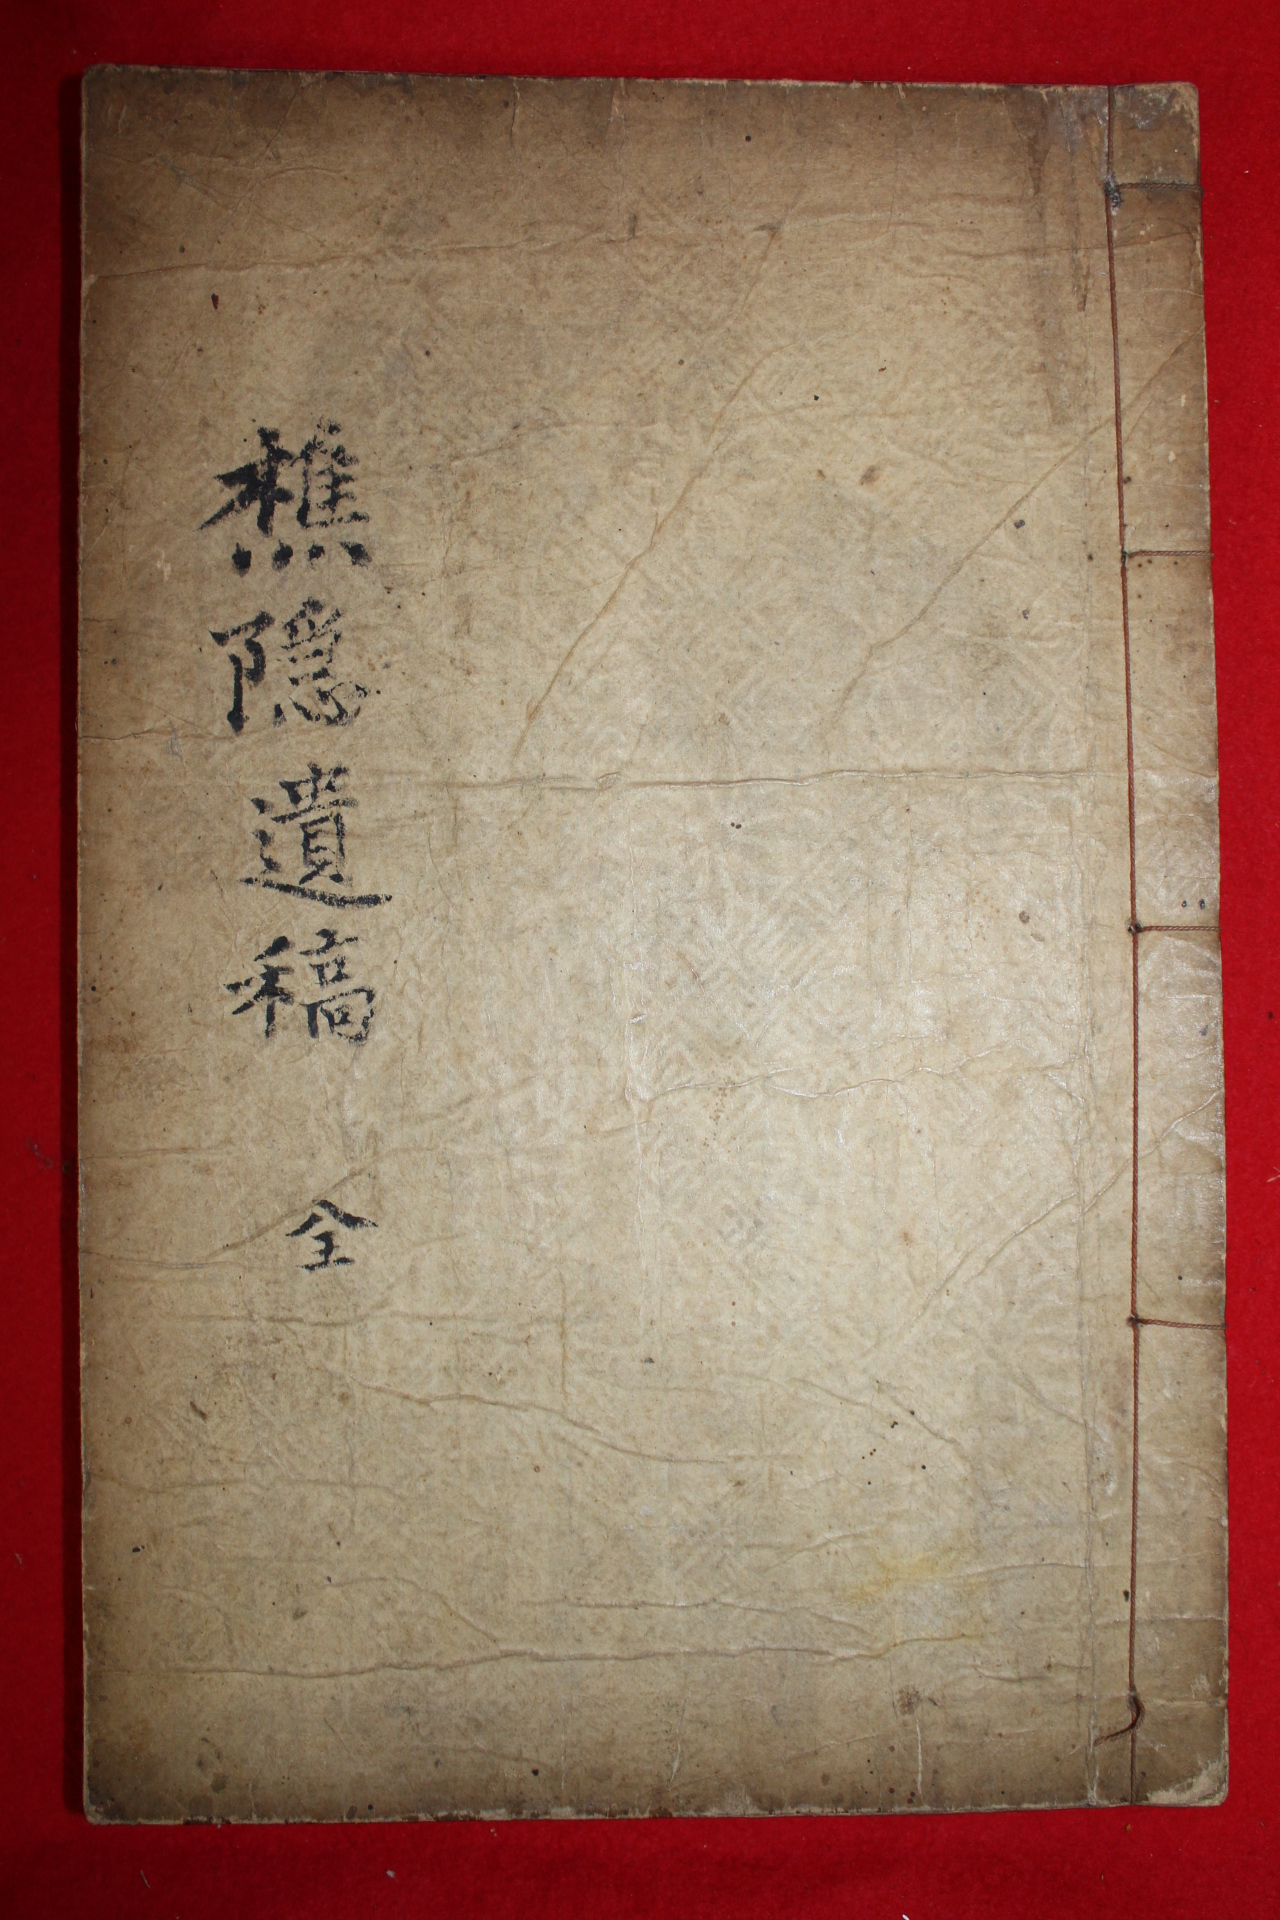 樵隱遺稿 全